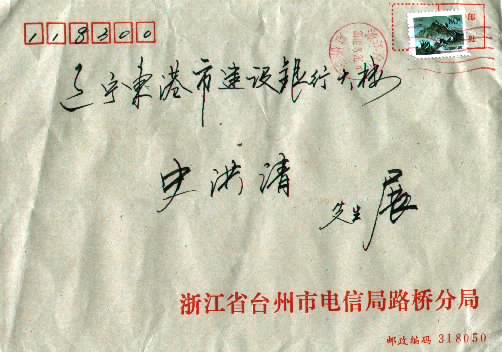 118300
辽宁東港市建设银行大楼
史洪清
先生 展
浙江省台州市电信局路桥分局
邮政编码 318050